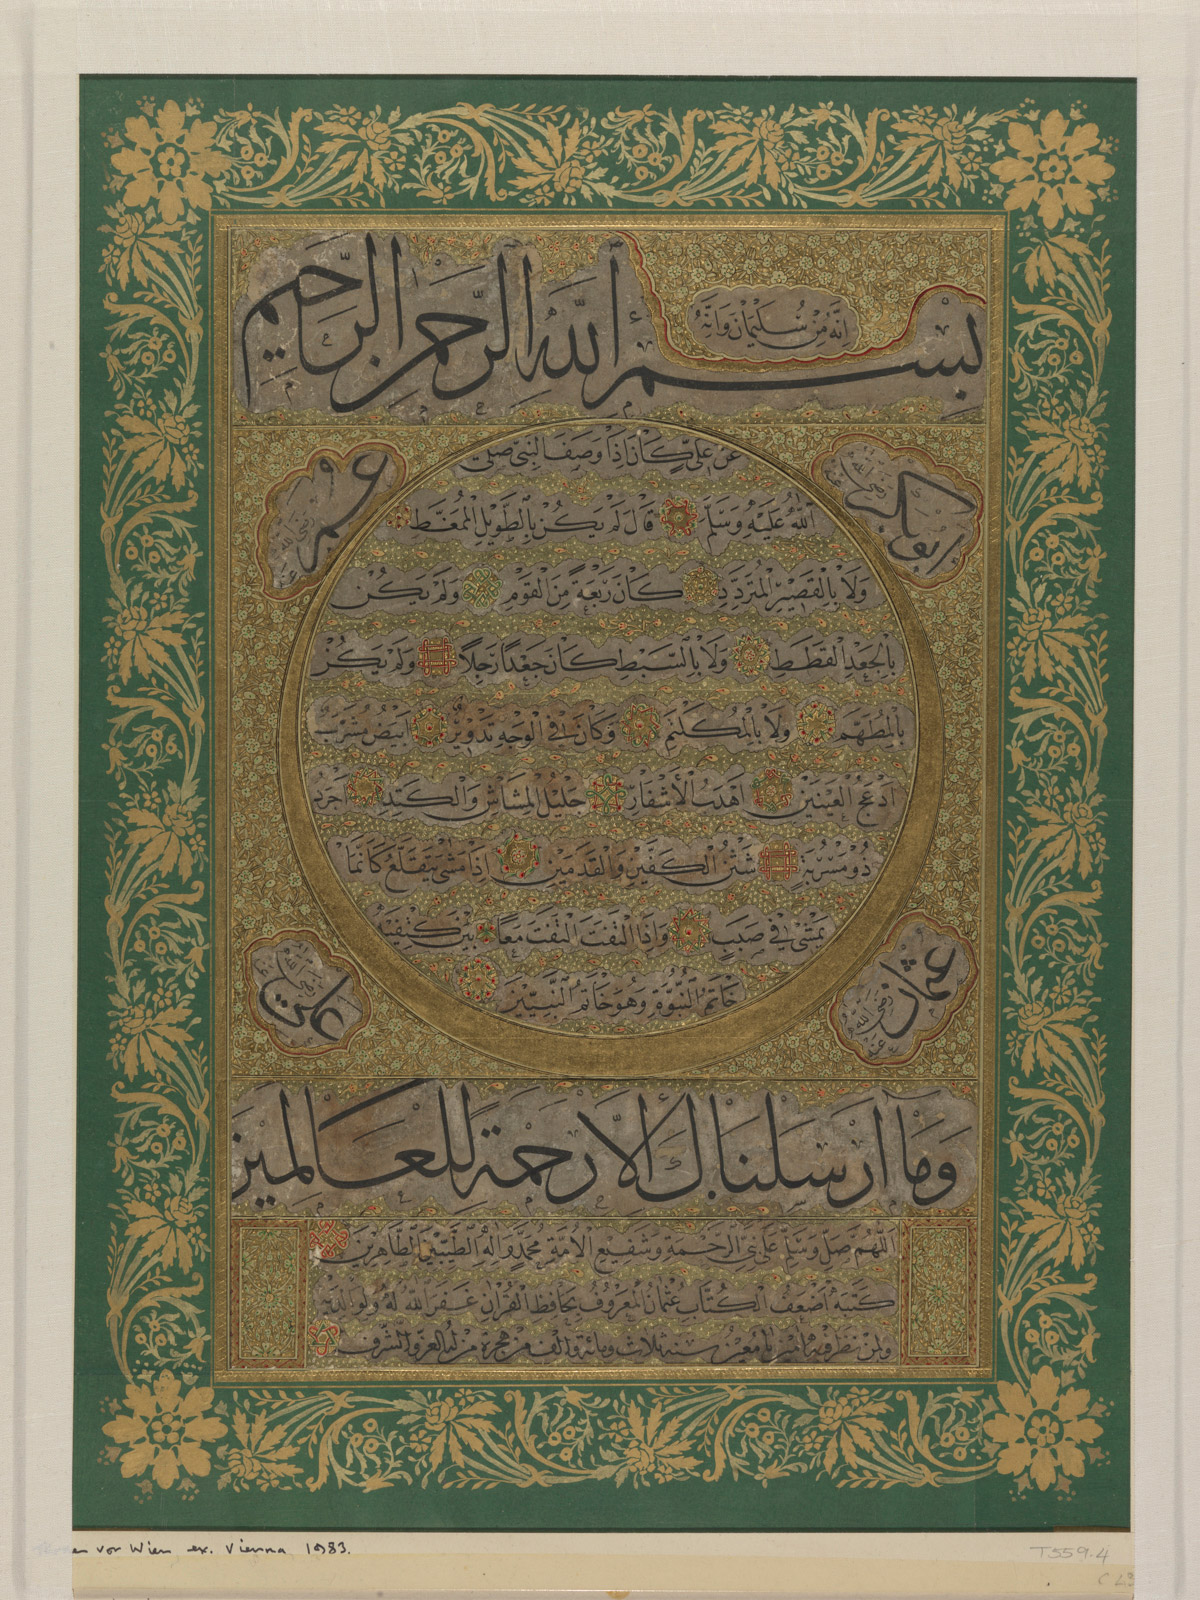 انه من سليمان وانه
بسم الله الرحمن الرحيم
ابو بكر رضي الله عنه
عمر رضي الله عنه
عن علي كان اذا وصف النبي صلى
الله عليه وسلم قال لم يكن بالطويل الممغط
ولا بالقصير المتردد كان ربعة من القوم ولم يكن
بالجعد القطط ولا بالسبط كان جعدا رجلا ولم يكن
بالمطهم ولا بالمكلثم وكان في الوجه تدوير ابيض مشرب
ادعج العينين اهدب الاشفار جليل المشاش والكتد اجرد
ذو مسربة شثن الكفين والقدمين اذا مشى يتقلع كانما
يمشي في صبب واذا التفت التفت معا بين كتفيه
خاتم النبوة وهو خاتم النبيين
عثمان رضي الله عنه
علي رضي الله عنه
وما ارسلناك الا رحمة للعالمين
اللهم صل وسلم على نبي الرحمة وشفيع الامة محمد واله الطيبين الطاهرين
كتبه اضعف الكتاب عثمان المعروف بحافظ القران غفر الله له ولوالديه
ولمن نظر فيه امين يا معين سنة ثلاث ومائة والف من هجرة من له العز والشرف
vor Wien ex. Vienna 1983.
T559-4